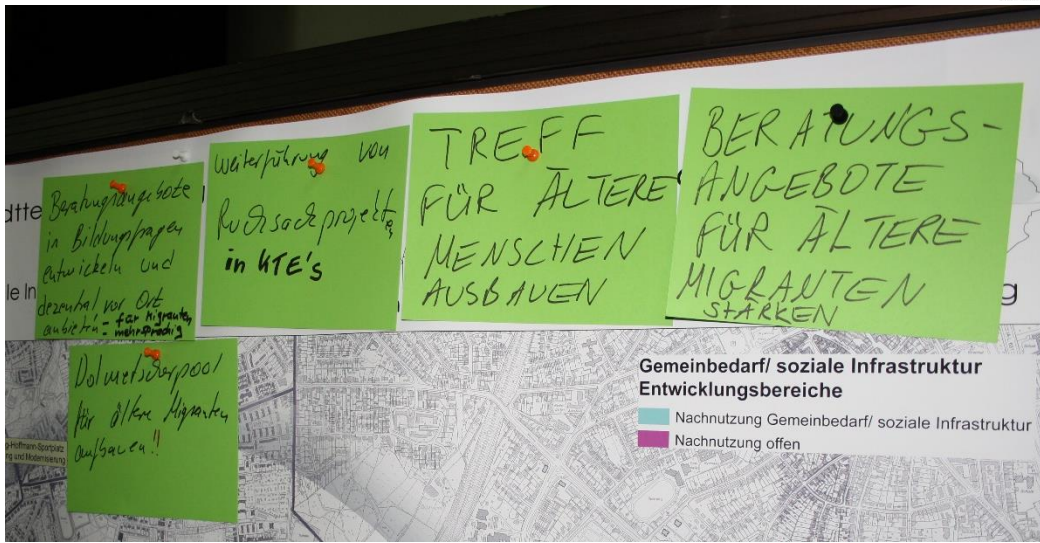 Beratungsangebote
in Bildungsfragen
entwickeln und
dezentral vor Ort
anbieten - für Migranten
mehrsprachig
Weiterführung von
Rucksackprojekten
in KTE's
TREFF
FÜR ÄLTERE
MENSCHEN
AUSBAUEN
BERATUNGS-
ANGEBOTE
FÜR ÄLTERE
MIGRANTEN
STÄRKEN
Dolmetscherpool
für ältere Migranten
aufbauen!!
Gemeinbedarf/ soziale Infrastruktur
Entwicklungsbereiche
Nachnutzung Gemeinbedarf/ soziale Infrastruktur
Nachnutzung offen
-Hoffmann-Sportplatz
ng und Modernisierung